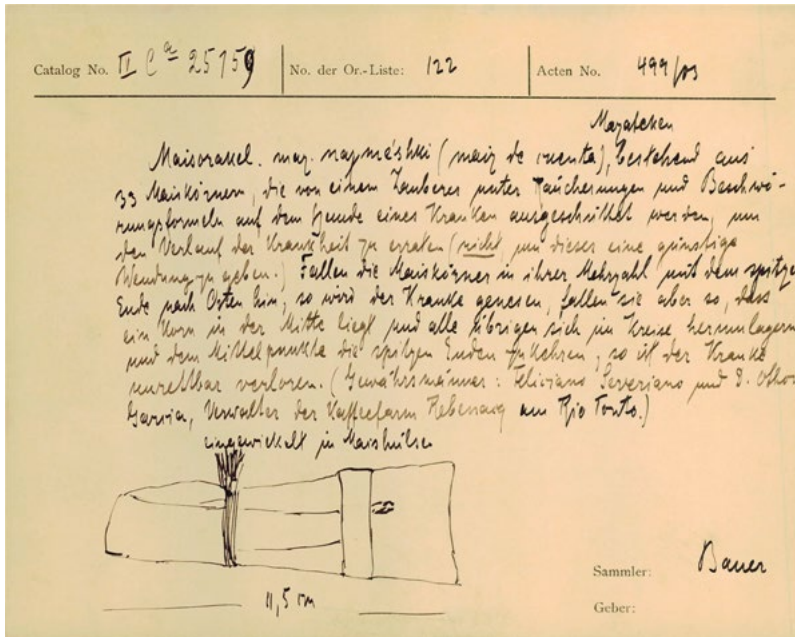 Catalog No. II C a 25159 No. der Or.-Liste: 122 Acten No. 499/03
Mazateken
Maisorakel. maz. (maiz de cuenta), bestehend aus
33 Maiskörnern, die von einem Zauberer unter Räucherungen und Beschwö-
rungsformeln auf dem Hemde eines Kranken ausgeschüttet werden, um
den Verlauf der Krankheit zu erraten (nicht, um dieser eine günstige
Wendung zu geben.) Fallen die Maiskörner in ihrer Mehrzahl mit dem spitzen
Ende nach Osten hin, so wird der Kranke genesen, fallen sie aber so, dass
ein Korn in der Mitte liegt und alle übrigen sich im Kreise herumlagern
und dem Mittelpunkte die spitzen Enden zukehren, so ist der Kranke
unrettbar verloren. (Gewährsmänner: Feliciano Severiano und D.
Garcia, Verwalter der Kaffeefarm am Rio Tonto.)
eingewickelt in Maishülse
11,5 cm
Sammler: Bauer
Geber: